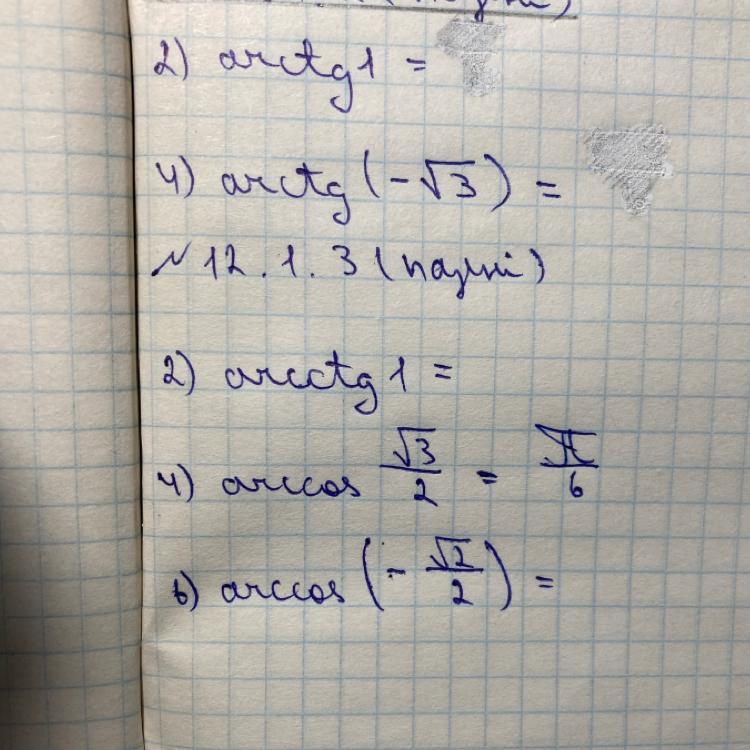 2) arctg 1 =
4) arctg (-√3) =
№ 12.1.3 (парні)
2) arcctg 1 =
4) arccos √3/2 = π/6
6) arccos (-√2/2) =